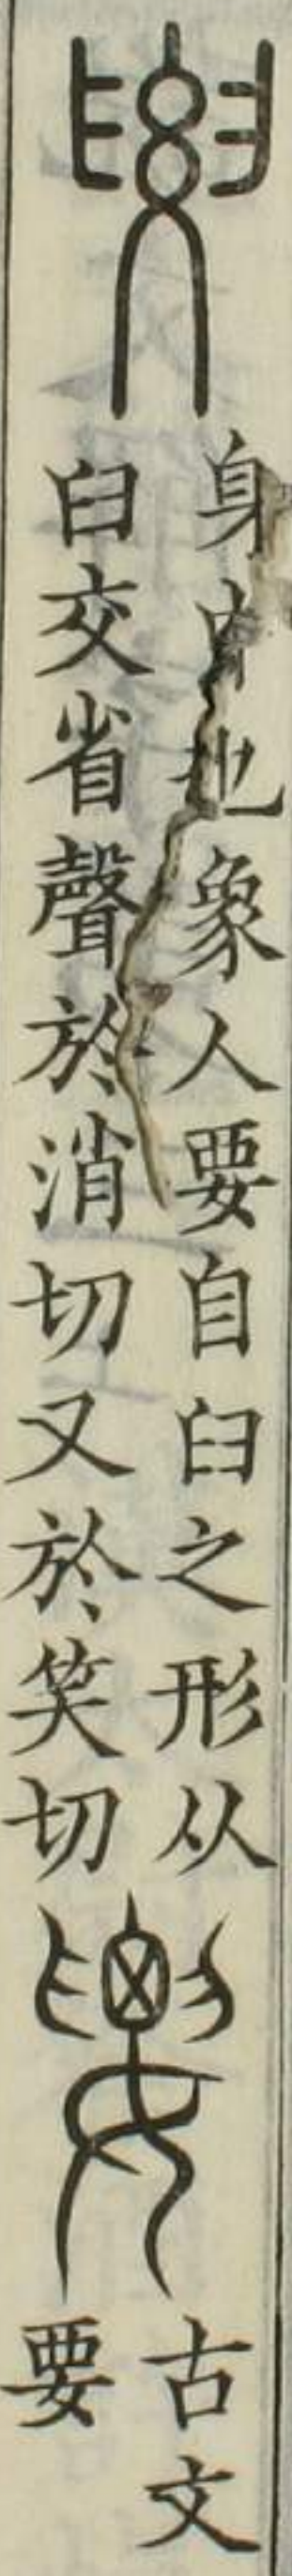 𦥼
身中也象人要自𦥑之形从
𦥑交省聲於消切又於笑切
𡢗
古文
要